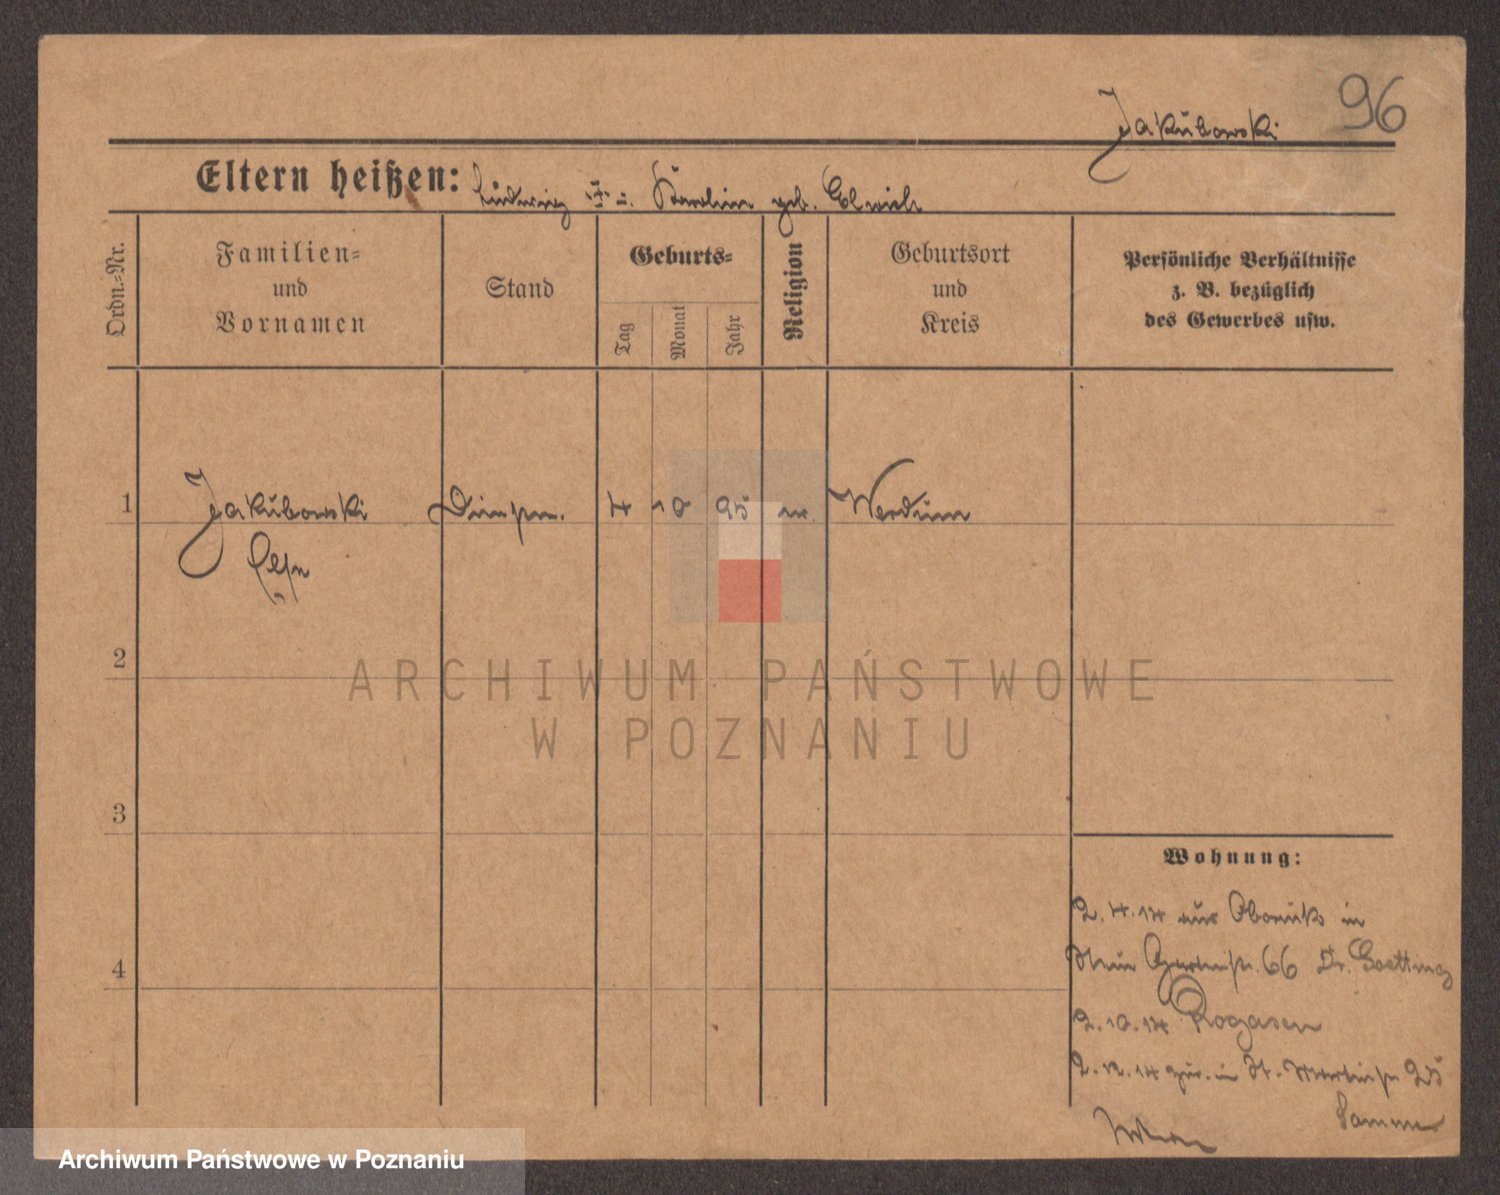 96
Jakubowski
Eltern heißen: Ludwig u. Karolin geb.
Ordn.=Nr.
Familien=
und
Vornamen
Stand
Geburts=
Tag
Monat
Jahr
Religion
Geburtsort
und
Kreis
Persönliche Verhältnisse
z. B. bezüglich
des Gewerbes usw.
1
Jakubowski
4 10 95
Werdum
2
ARCHIWUM PAŃSTWOWE
W POZNANIU
3
Wohnung:
2.4.14 aus Obornik in
4
66 Dr. Goetting
2.10.14 Rogasen
2.12.14 zur. in St. Martinstr 25
Archiwum Państwowe w Poznaniu